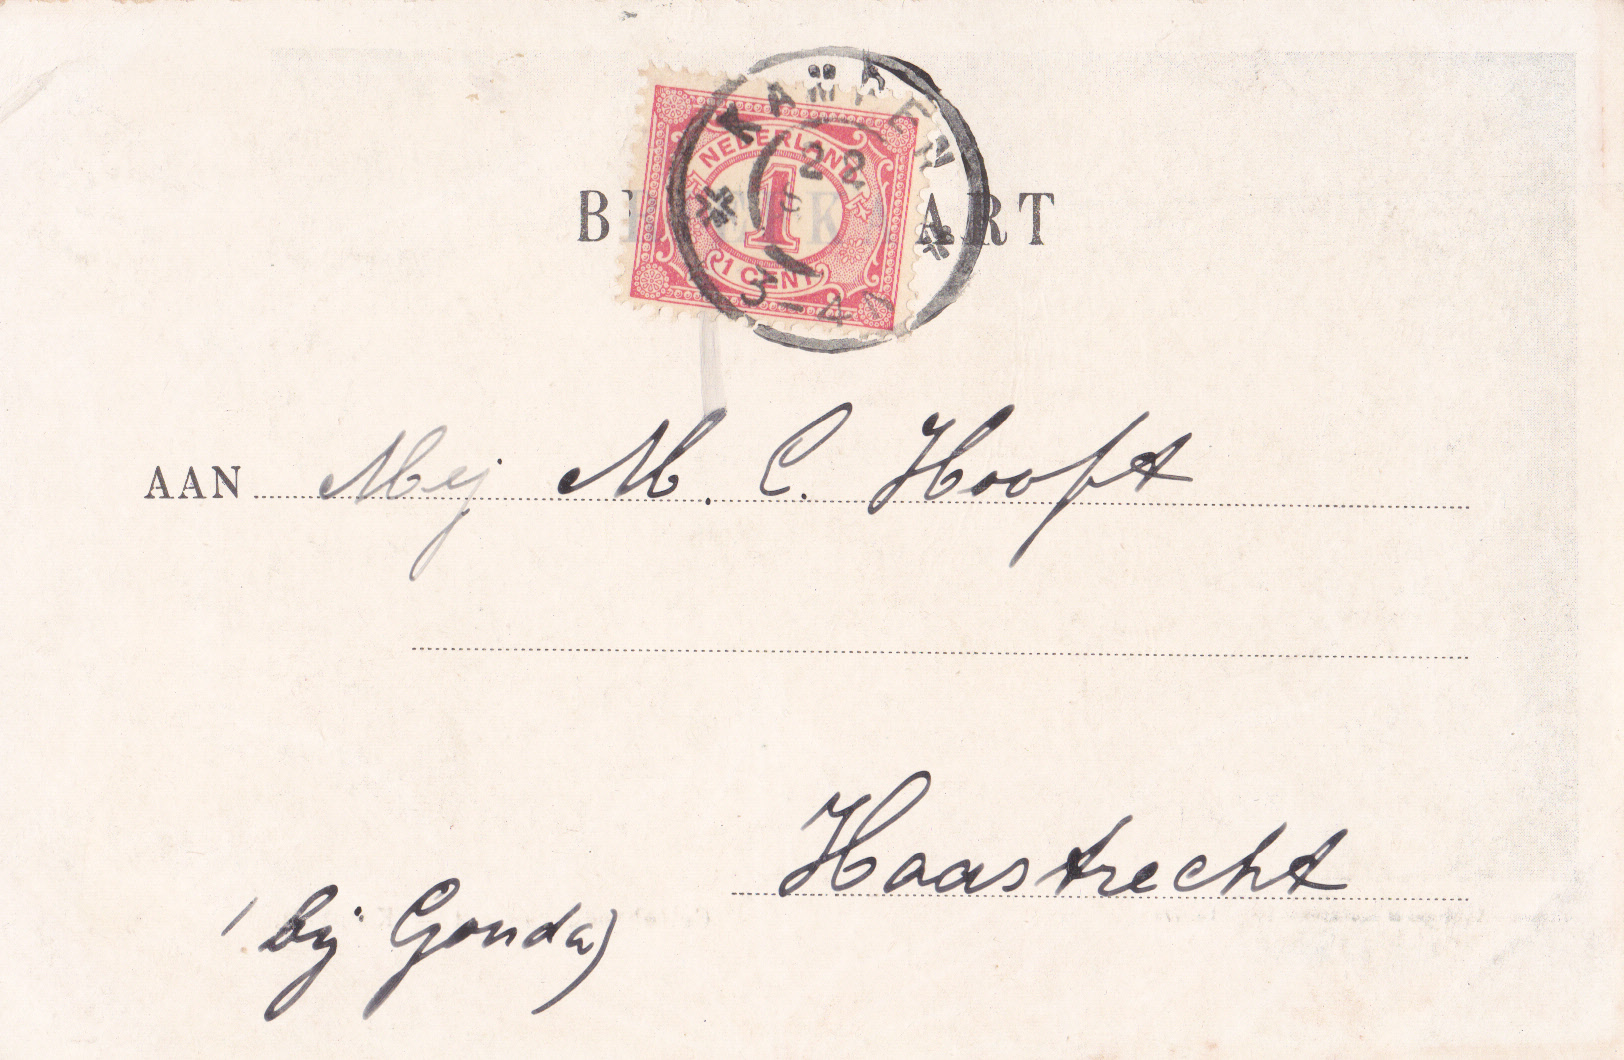 KAMPEN
NEDERLAND
28
1
1 CENT
3-4
BRIEFKAART
AAN Mej M. C. Hooft
Haastrecht
(bij Gouda)